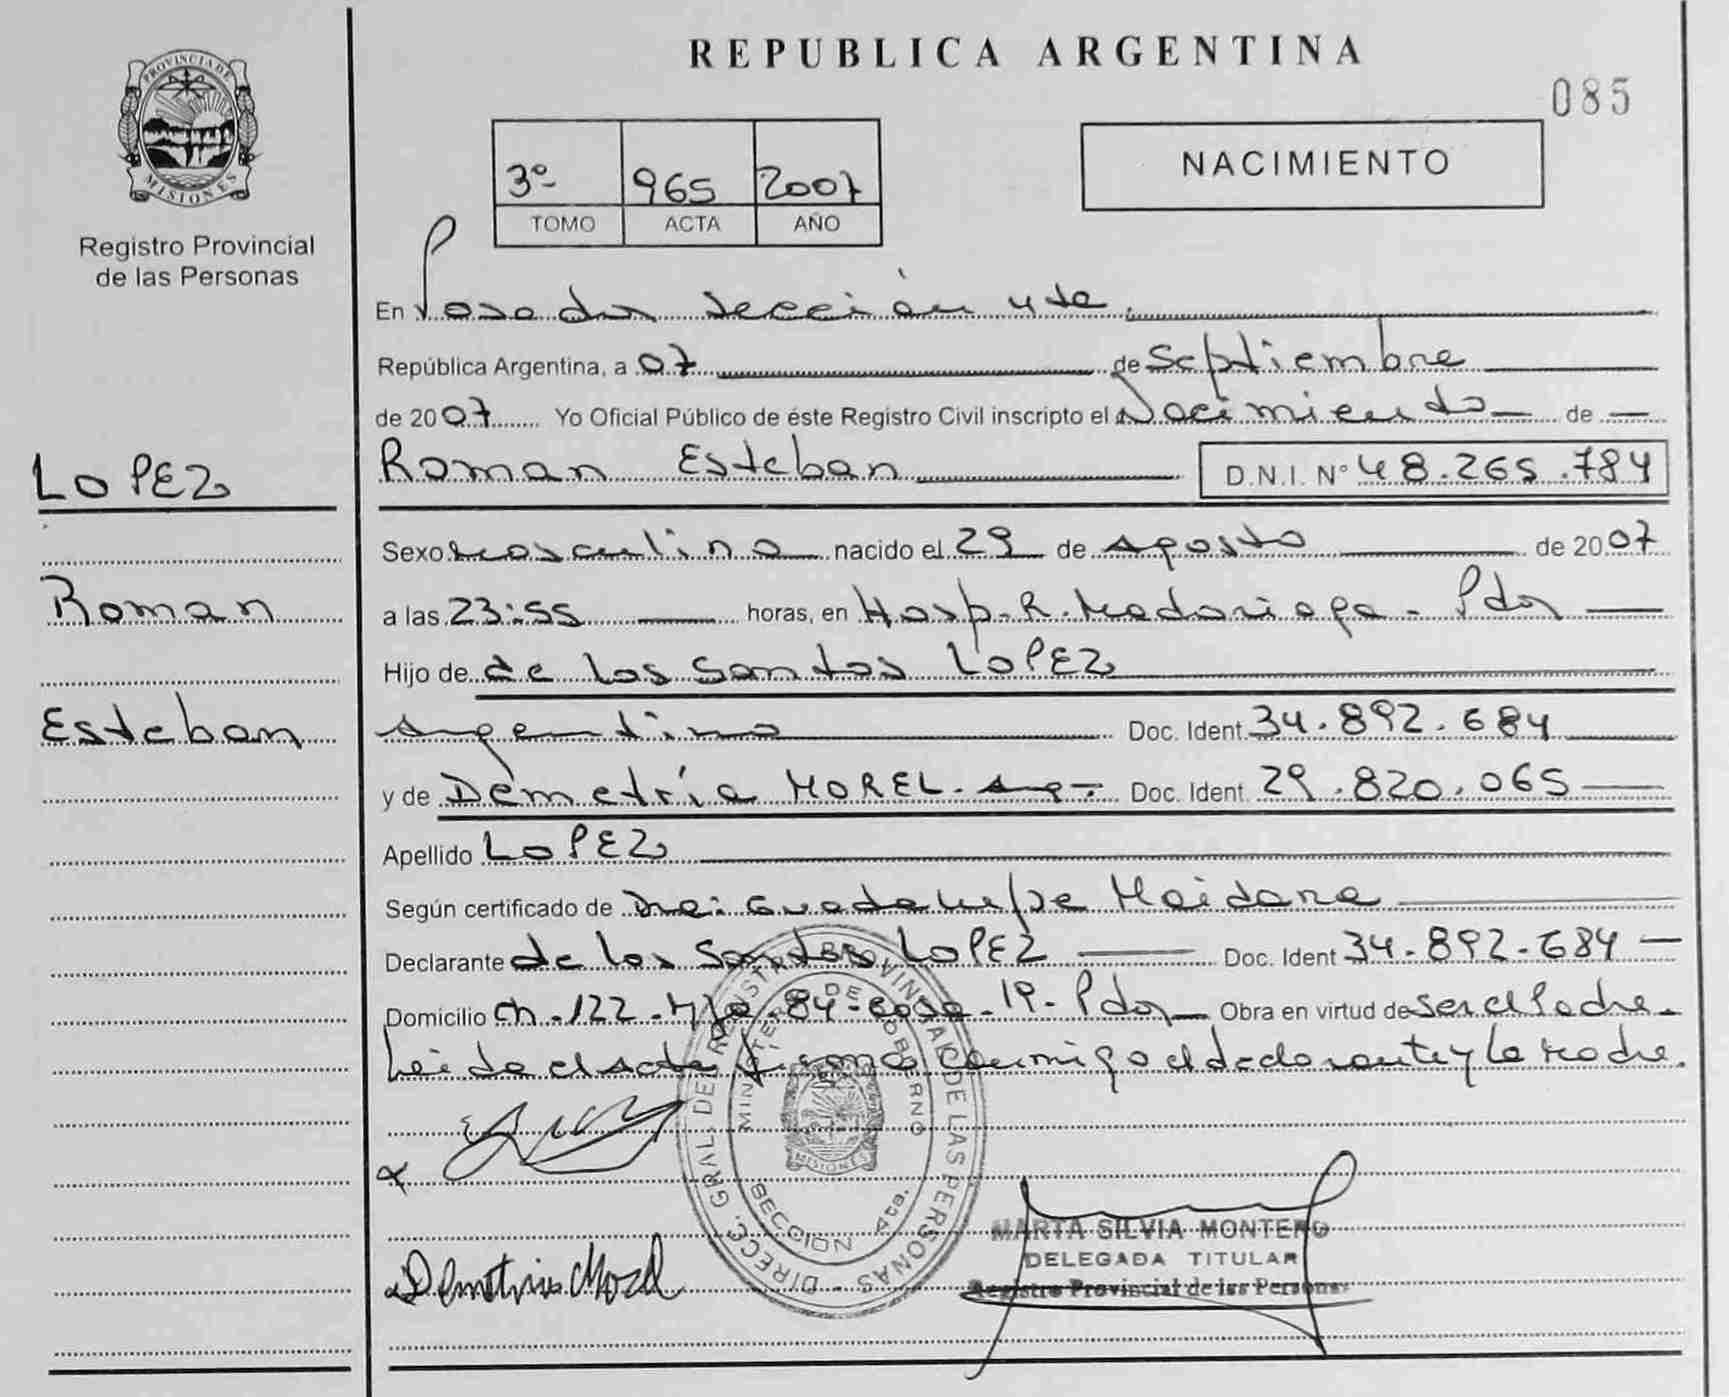 REPUBLICA ARGENTINA
085
PROVINCIA DE
MISIONES
Registro Provincial
de las Personas
3º 965 2007
TOMO ACTA AÑO
NACIMIENTO
En Posadas sección 4ta
República Argentina, a 07 de Septiembre
de 2007 Yo Oficial Público de éste Registro Civil inscripto el Nacimiento de
LOPEZ
Roman Esteban D.N.I. Nº 48.265.784
Sexo masculino nacido el 29 de Agosto de 2007
Roman
a las 23:55 horas, en Hosp. R. Madariaga - Pdas
Hijo de de los Santos LOPEZ
Esteban
Argentino Doc. Ident. 34.892.684
y de Demetria MOREL. Arg. Doc. Ident. 29.820.065
Apellido LOPEZ
Según certificado de Dra: Guadalupe Maidana
Declarante de los Santos LOPEZ Doc. Ident 34.892.684
Domicilio Ch. 122 - Mza. 84 - casa - 19 - Pdas Obra en virtud de ser el Padre.
Leida el acta firma conmigo el declarante y la Madre.
DIREC. GRAL. DE REGISTRO PROVINCIAL DE LAS PERSONAS
MINISTERIO DE GOBIERNO
MISIONES
SECCION 4ta.
MARTA SILVIA MONTERO
DELEGADA TITULAR
Registro Provincial de las Personas
Demetria Morel